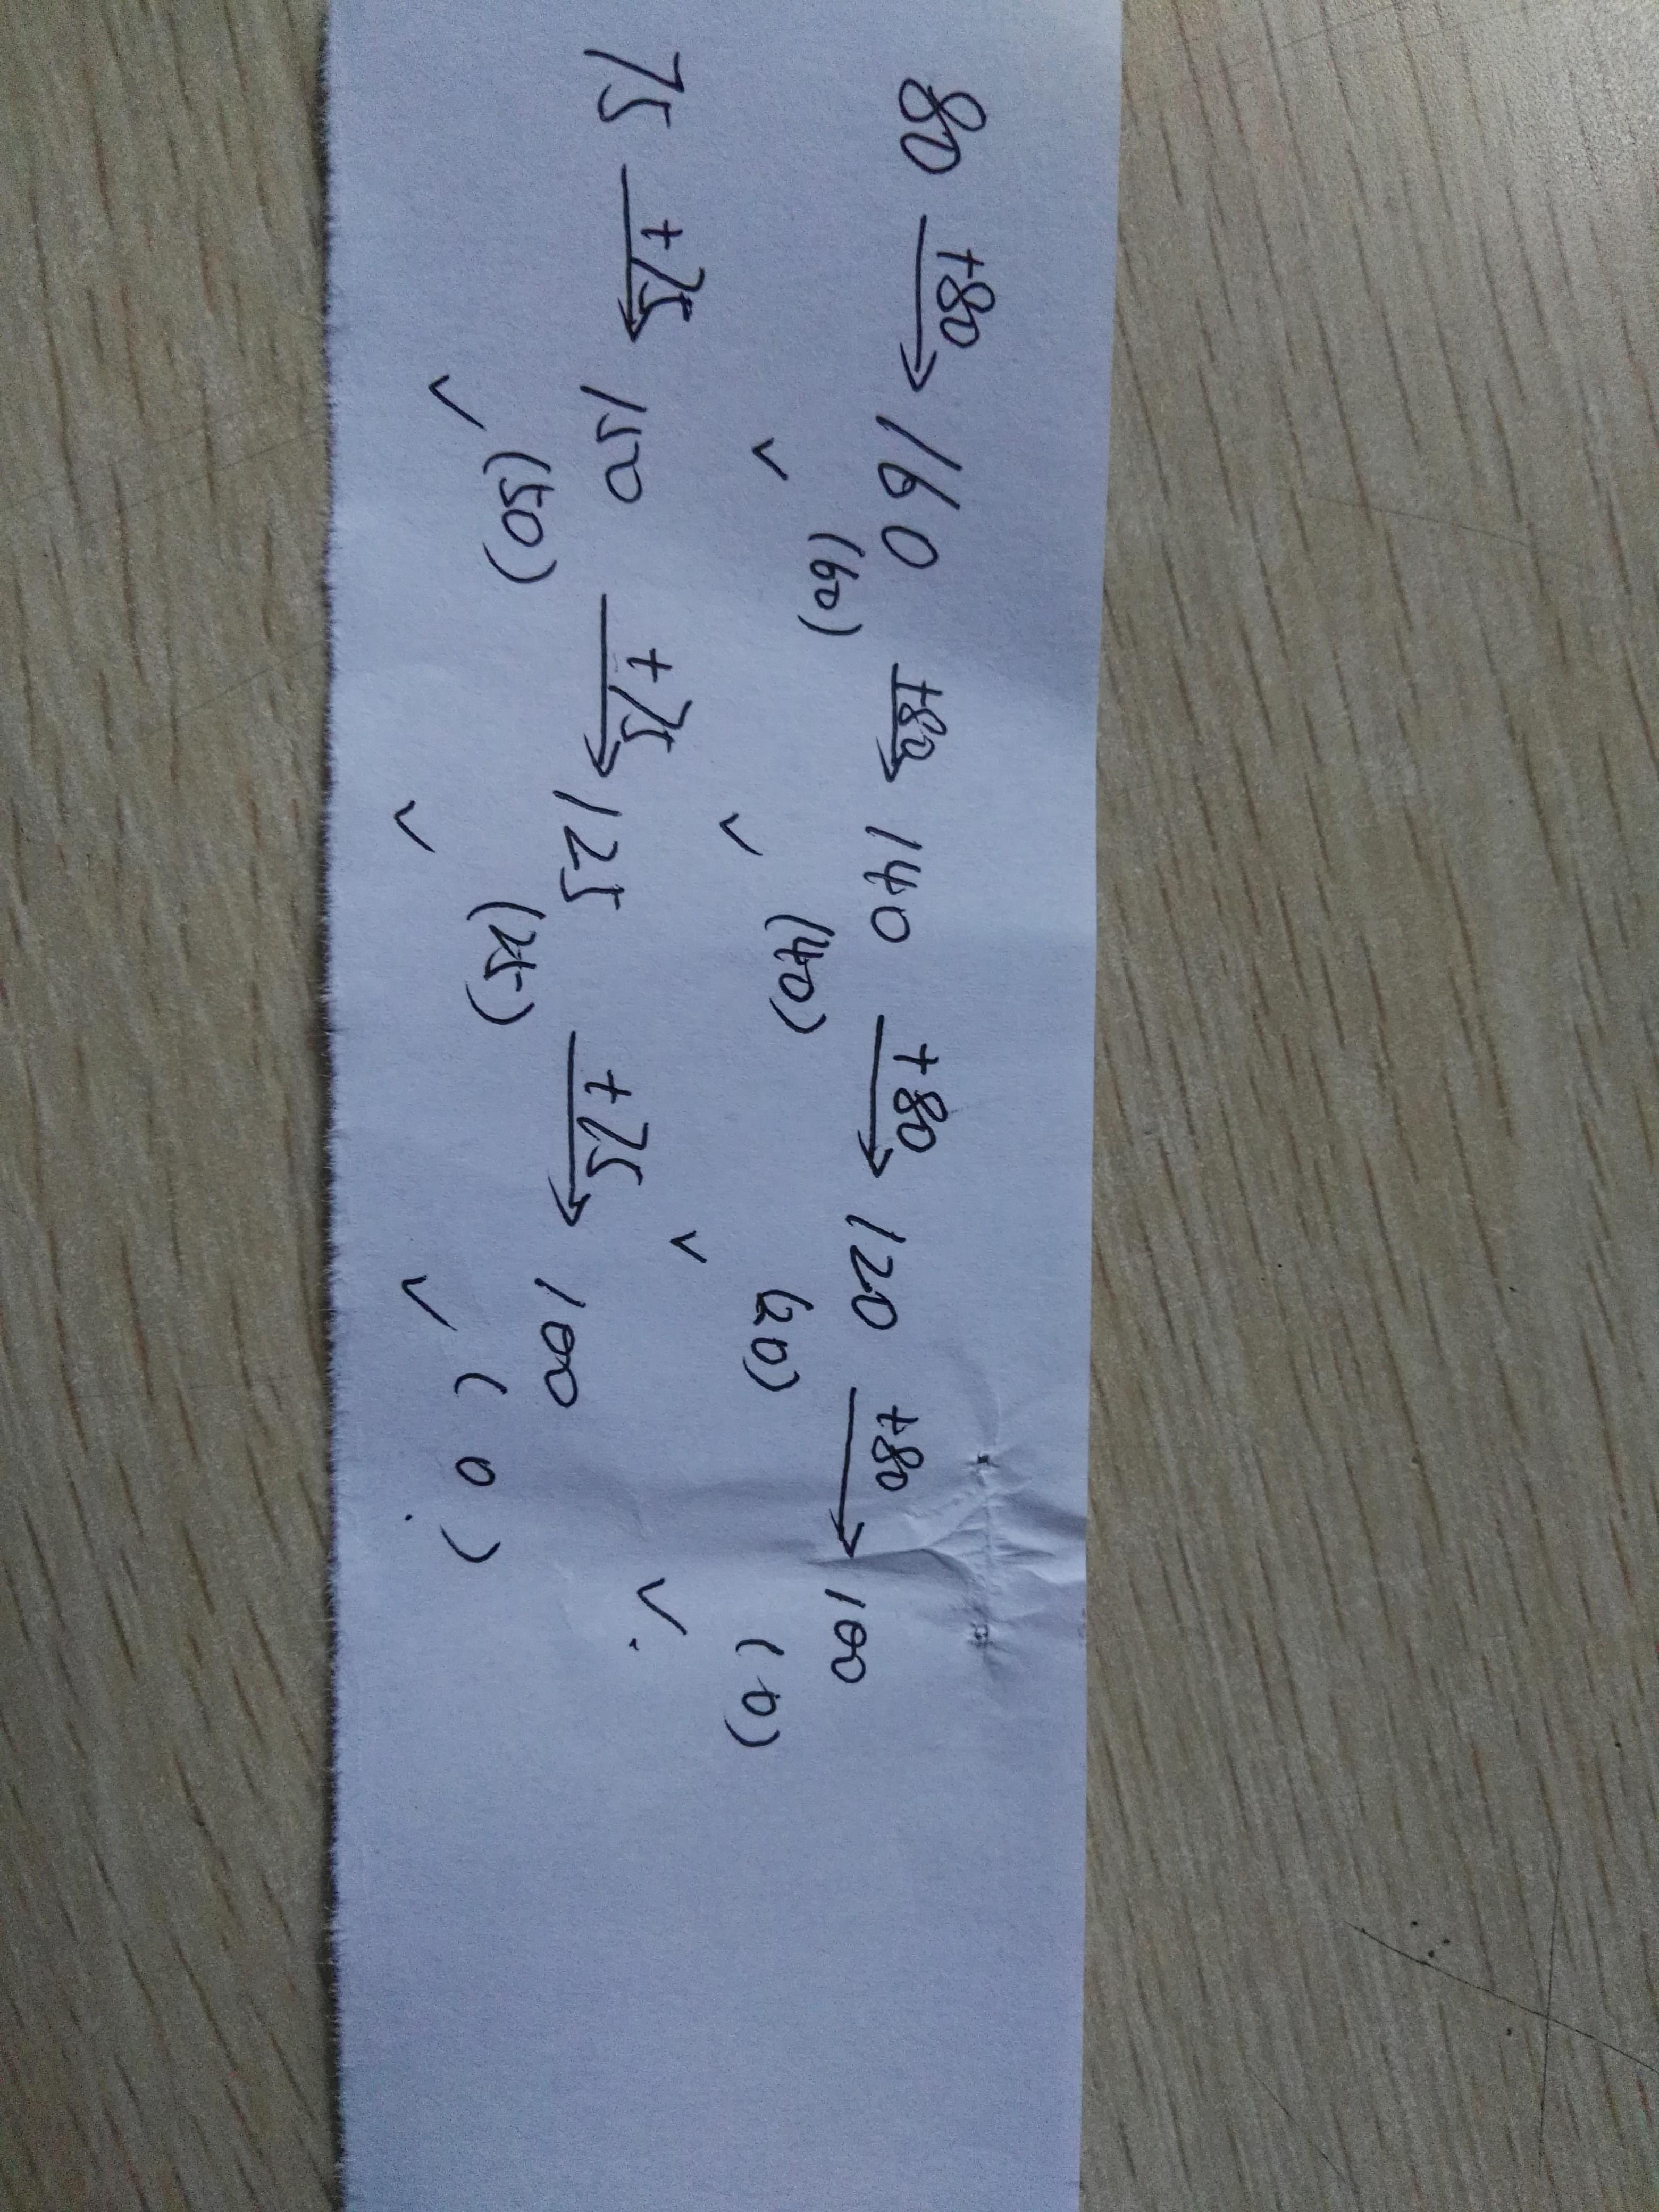 80 +80→ 160 +80→ 140 +80→ 120 +80→ 100
✓ (60) ✓ (40) ✓ (20) ✓ (0)
75 +75→ 150 +75→ 125 +75→ 100
✓ (50) ✓ (25) ✓ (0)